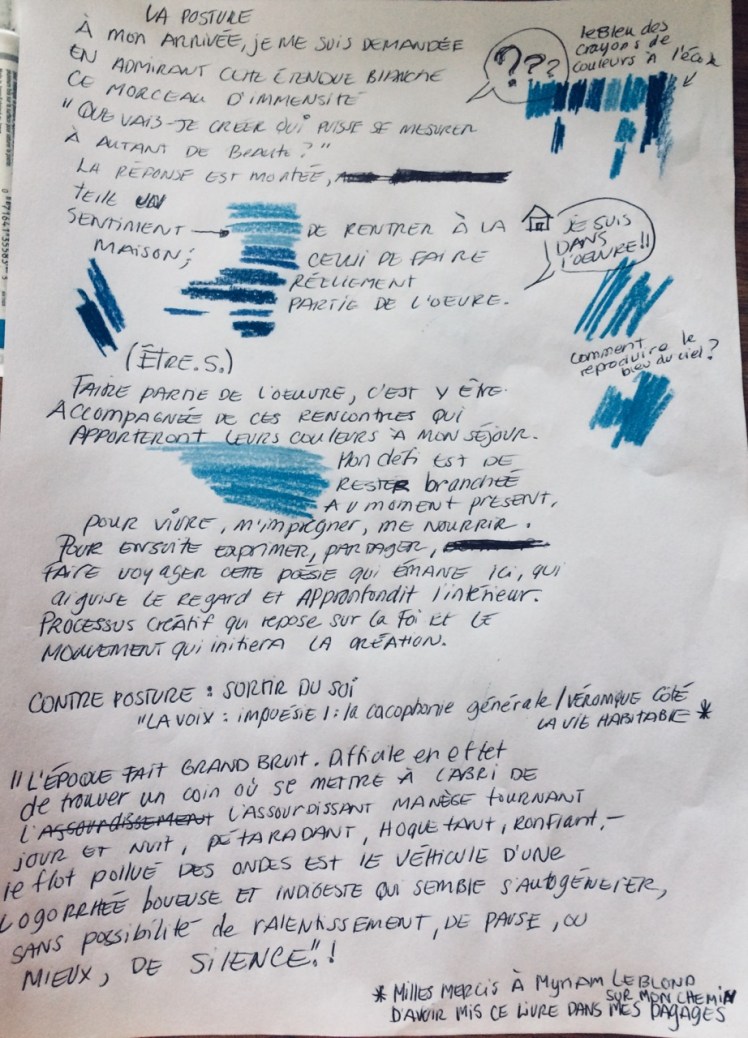 LA POSTURE
À MON ARRIVÉE, JE ME SUIS DEMANDÉE
EN ADMIRANT CETTE ÉTENDUE BLANCHE
CE MORCEAU D'IMMENSITÉ
"QUE VAIS-JE CRÉER QUI PUISSE SE MESURER
À AUTANT DE BEAUTÉ?"
LA RÉPONSE EST MONTÉE,
TELLE UN
SENTIMENT DE RENTRER À LA
MAISON; CELUI DE FAIRE
RÉELLEMENT
PARTIE DE L'OEUVRE.
???
le bleu des
crayons de
couleurs à l'école
JE SUIS
DANS
L'OEUVRE!!
comment
reproduire le
bleu du ciel?
(ÊTRE.S.)
FAIRE PARTIE DE L'OEUVRE, C'EST Y ÊTRE
ACCOMPAGNÉE DE CES RENCONTRES QUI
APPORTERONT LEURS COULEURS À MON SÉJOUR.
MON DÉFI EST DE
RESTER branchée
AU MOMENT PRÉSENT,
POUR VIVRE, M'IMPRÉGNER, ME NOURRIR.
POUR ENSUITE EXPRIMER, PARTAGER,
FAIRE VOYAGER CETTE POÉSIE QUI ÉMANE ICI, QUI
AIGUISE LE REGARD ET APPROFONDIT l'intérieur.
PROCESSUS CRÉATIF QUI REPOSE SUR LA FOI ET LE
MOUVEMENT QUI INITIERA LA CRÉATION.
CONTRE POSTURE : SORTIR DU SOI
"LA VOIX : IMPOÉSIE 1: la cacophonie générale / VÉRONIQUE CÔTÉ
LA VIE HABITABLE *
"L'ÉPOQUE FAIT GRAND BRUIT. Difficile en effet
de trouver un coin où SE METTRE À L'ABRI DE
L'ASSOURDISSEMENT L'ASSOURDISSANT MANÈGE TOURNANT
JOUR ET NUIT, PÉTARADANT, HOQUETANT, RONFLANT,-
le flot pollué DES ONDES EST LE VÉHICULE D'UNE
LOGORRHÉE BOUEUSE ET INDIGESTE QUI SEMBLE S'AUTOGÉNÉRER,
SANS possibilité de RALENTISSEMENT, DE PAUSE, OU
MIEUX, DE SILENCE."!
* MILLES MERCIS À MYRIAM LEBLOND
SUR MON CHEMIN
D'AVOIR MIS CE LIVRE DANS MES BAGAGES